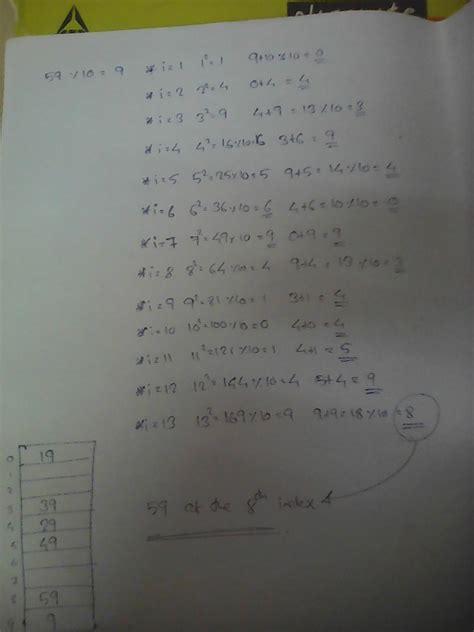 59 % 10 = 9
* i=1 1² = 1 9+10 % 10 = 0
* i=2 2² = 4 0+4 = 4
* i=3 3² = 9 4+9 = 13 % 10 = 3
* i=4 4² = 16 % 10 = 6 3+6 = 9
* i=5 5² = 25 % 10 = 5 9+5 = 14 % 10 = 4
* i=6 6² = 36 % 10 = 6 4+6 = 10 % 10 = 0
* i=7 7² = 49 % 10 = 9 0+9 = 9
* i=8 8² = 64 % 10 = 4 9+4 = 13 % 10 = 3
* i=9 9² = 81 % 10 = 1 3+1 = 4
* i=10 10² = 100 % 10 = 0 4+0 = 4
* i=11 11² = 121 % 10 = 1 4+1 = 5
* i=12 12² = 144 % 10 = 4 5+4 = 9
* i=13 13² = 169 % 10 = 9 9+9 = 18 % 10 = 8
59 at the 8th index
0 19
1
2
3 39
4 29
5 49
6
7
8 59
9 9